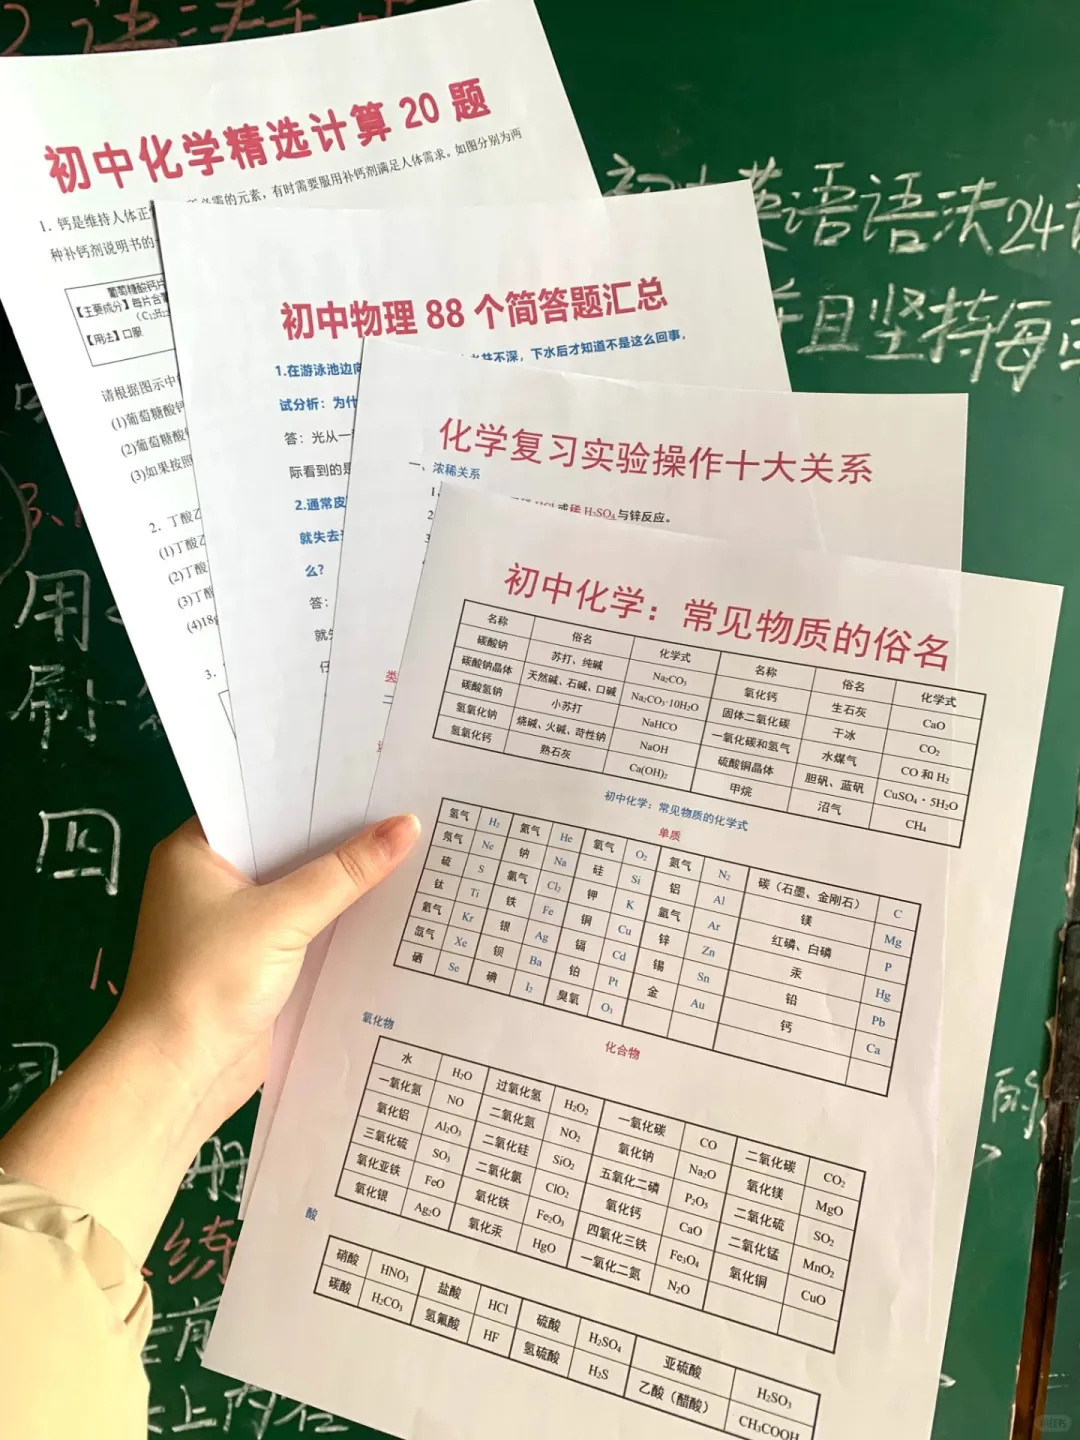 初中化学精选计算 20 题
1. 钙是维持人体正 必需的元素，有时需要服用补钙剂满足人体需求。如图分别为两
种补钙剂说明书的一
葡萄糖酸钙片
【主要成分】每片含葡
【用法】口服
请根据图示中
(1)葡萄糖酸钙
(2)葡萄糖酸
(3)如果按照
2. 丁酸乙
(1)丁酸乙
(2)丁酸
(3)丁酸
(4)18g
3.
初中物理 88 个简答题汇总
1.在游泳池边向 水并不深，下水后才知道不是这么回事，
试分析：为什
答：光从一
际看到的是
2.通常皮
就失去
么？
答：
就
化学复习实验操作十大关系
一、浓稀关系
1、 或稀 H₂SO₄ 与锌反应。
2
3
类
二
初中化学：常见物质的俗名
名称 俗名 化学式 名称 俗名 化学式
碳酸钠 苏打、纯碱 Na₂CO₃ 氧化钙 生石灰 CaO
碳酸钠晶体 天然碱、石碱、口碱 Na₂CO₃·10H₂O 固体二氧化碳 干冰 CO₂
碳酸氢钠 小苏打 NaHCO 一氧化碳和氢气 水煤气 CO 和 H₂
氢氧化钠 烧碱、火碱、苛性钠 NaOH 硫酸铜晶体 胆矾、蓝矾 CuSO₄・5H₂O
氢氧化钙 熟石灰 Ca(OH)₂ 甲烷 沼气 CH₄
初中化学：常见物质的化学式
单质
氢气 H₂ 氦气 He 氧气 O₂ 氮气 N₂ 碳（石墨、金刚石） C
氖气 Ne 钠 Na 硅 Si 铝 Al 镁 Mg
硫 S 氯气 Cl₂ 钾 K 氩气 Ar 红磷、白磷 P
钛 Ti 铁 Fe 铜 Cu 锌 Zn 汞 Hg
氪气 Kr 银 Ag 镉 Cd 锡 Sn 铅 Pb
氙气 Xe 钡 Ba 铂 Pt 金 Au 钙 Ca
硒 Se 碘 I₂ 臭氧 O₃
化合物
氧化物
水 H₂O 过氧化氢 H₂O₂ 一氧化碳 CO 二氧化碳 CO₂
一氧化氮 NO 二氧化氮 NO₂ 氧化钠 Na₂O 氧化镁 MgO
氧化铝 Al₂O₃ 二氧化硅 SiO₂ 五氧化二磷 P₂O₅ 二氧化硫 SO₂
三氧化硫 SO₃ 二氧化氯 ClO₂ 氧化钙 CaO 二氧化锰 MnO₂
氧化亚铁 FeO 氧化铁 Fe₂O₃ 四氧化三铁 Fe₃O₄ 氧化铜 CuO
氧化银 Ag₂O 氧化汞 HgO 一氧化二氮 N₂O
酸
硝酸 HNO₃ 盐酸 HCl 硫酸 H₂SO₄ 亚硫酸 H₂SO₃
碳酸 H₂CO₃ 氢氟酸 HF 氢硫酸 H₂S 乙酸（醋酸） CH₃COOH
初中英语语法24
并且坚持每
用
刷
四
的
练
上内在
小红书